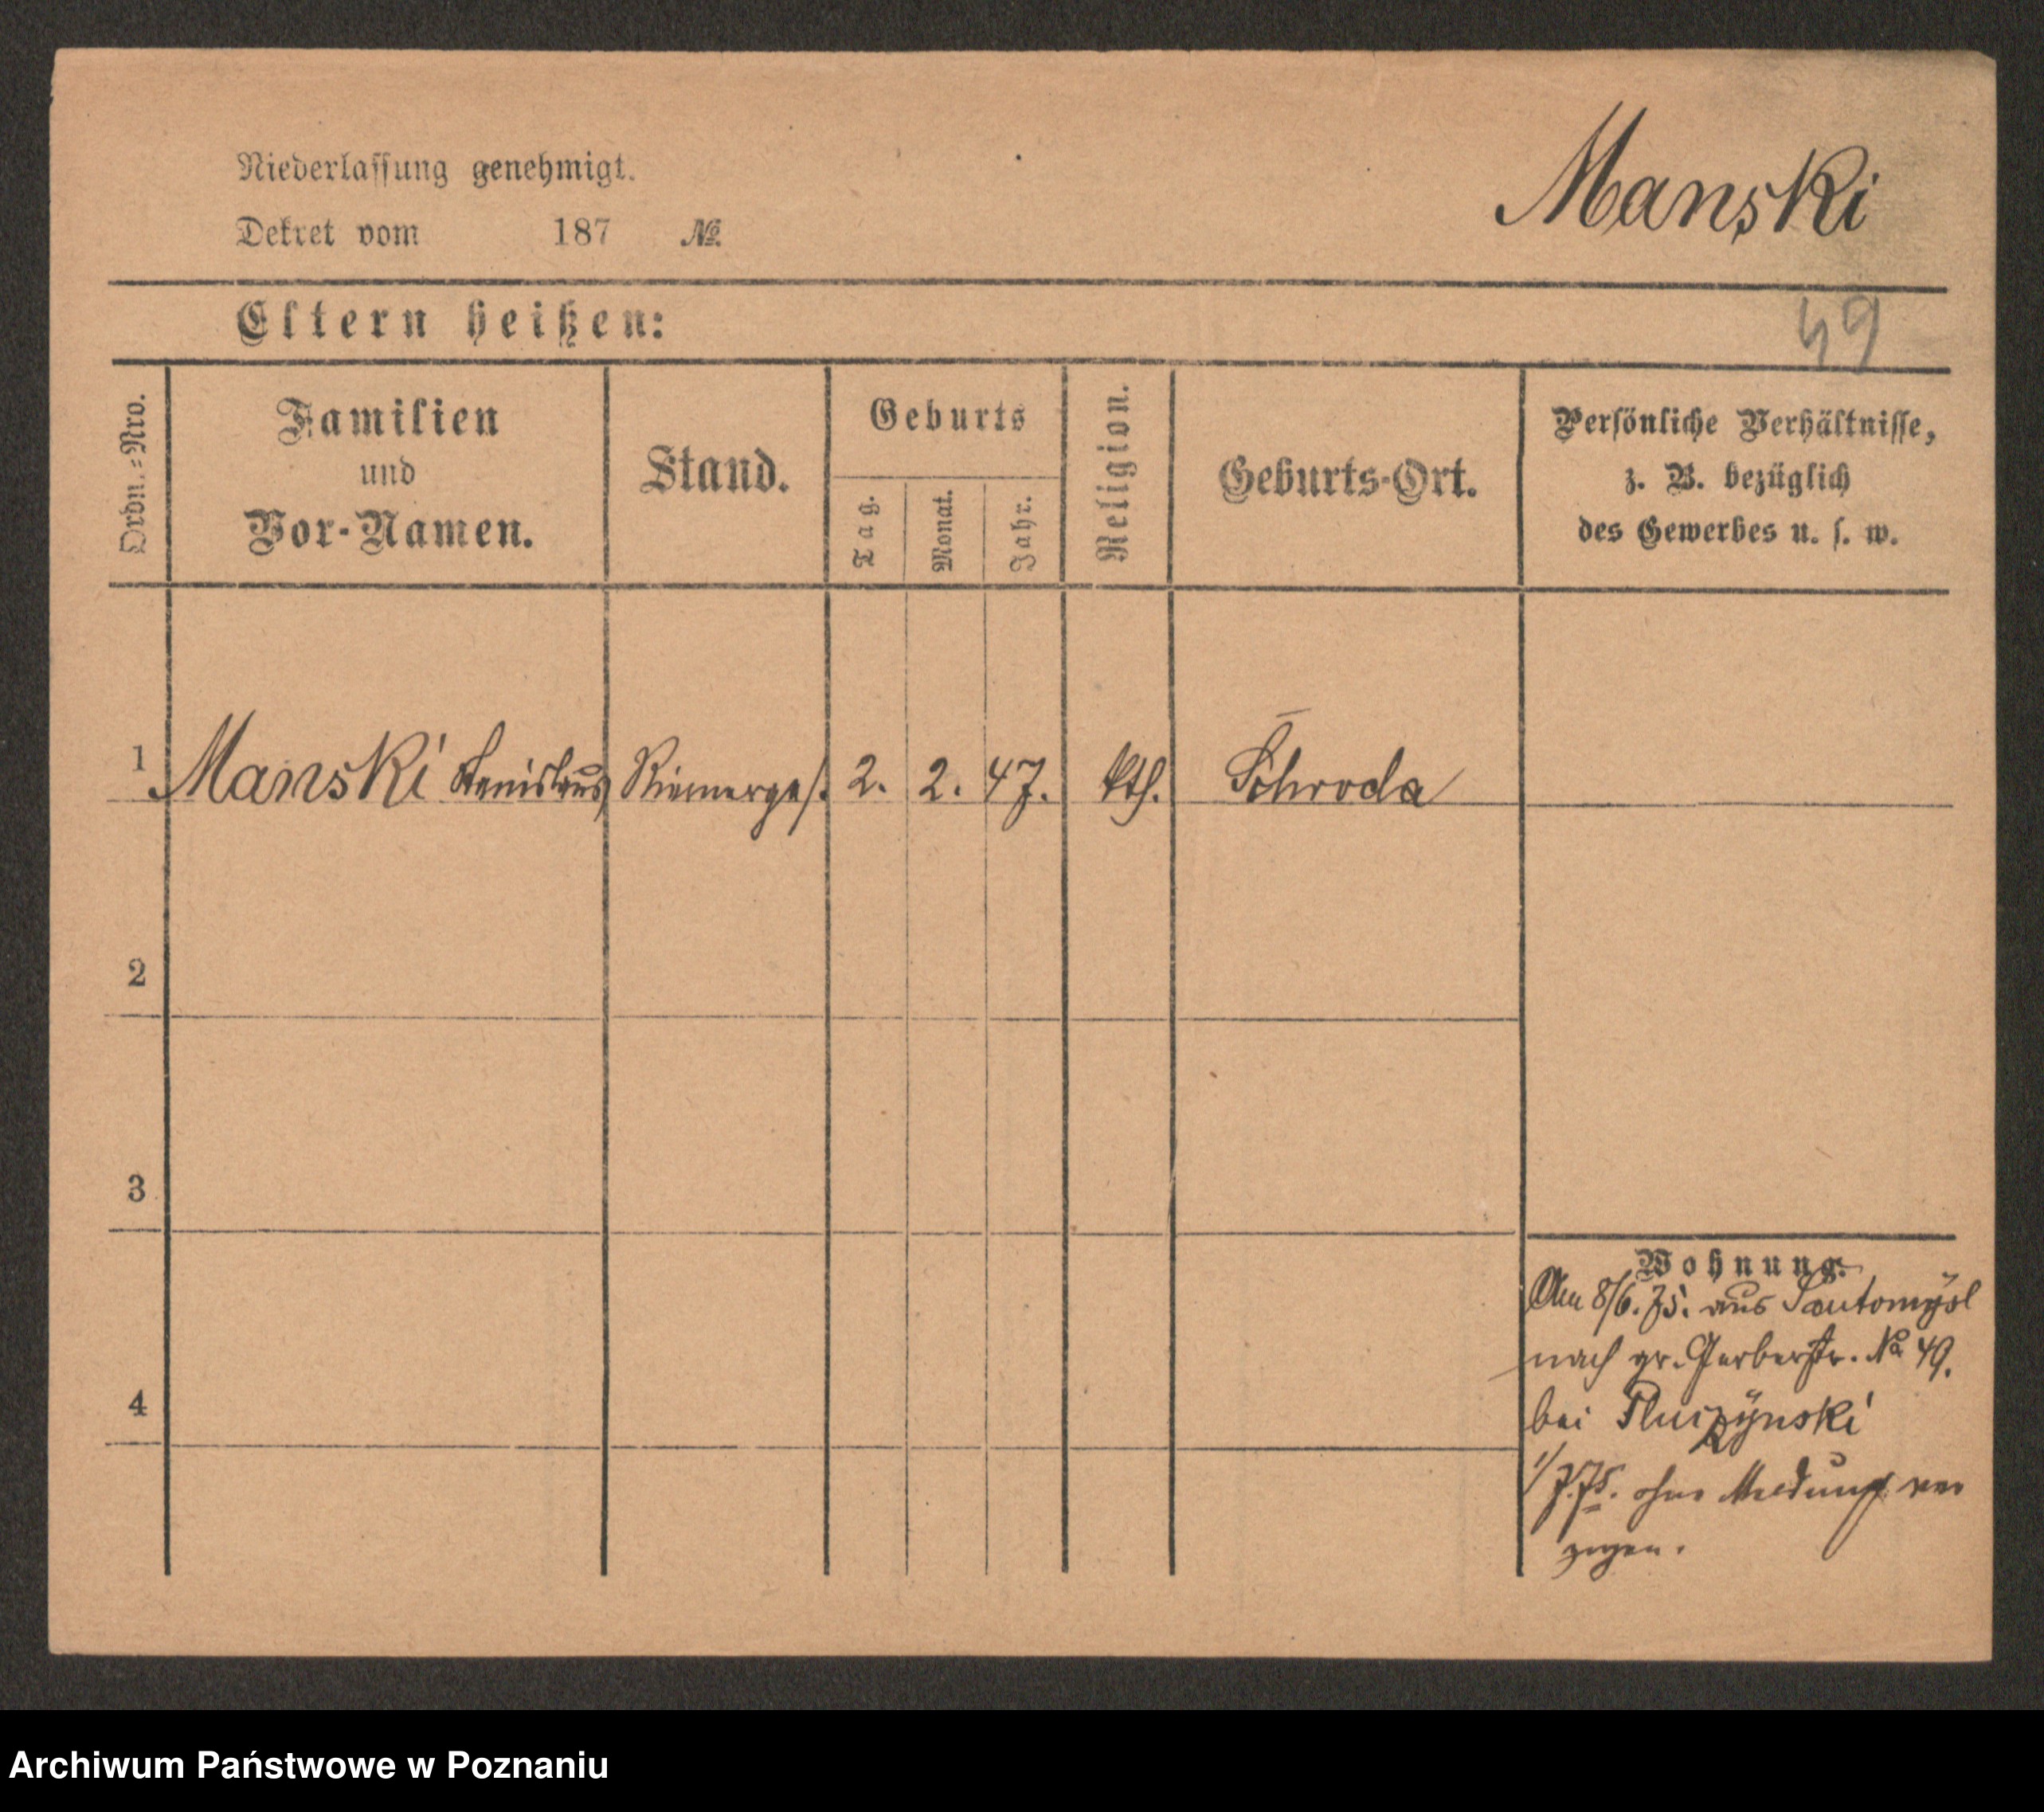 Niederlassung genehmigt.
Dekret vom 187 №
Manski
Eltern heißen:
49
Ordn.-Nro.
Familien
und
Vor-Namen.
Stand.
Geburts
Tag.
Monat.
Jahr.
Religion.
Geburts-Ort.
Persönliche Verhältnisse,
z. B. bezüglich
des Gewerbes u. s. w.
1 Manski Stanislaus Riemerges. 2. 2. 47. kth. Schroda
2
3
4
Wohnung.
Am 8/6. 75. aus Santomÿsl
nach gr. Gerberstr. No 49.
bei Pluszÿnski
1/7.75. ohne Meldung ver
zogen.
Archiwum Państwowe w Poznaniu